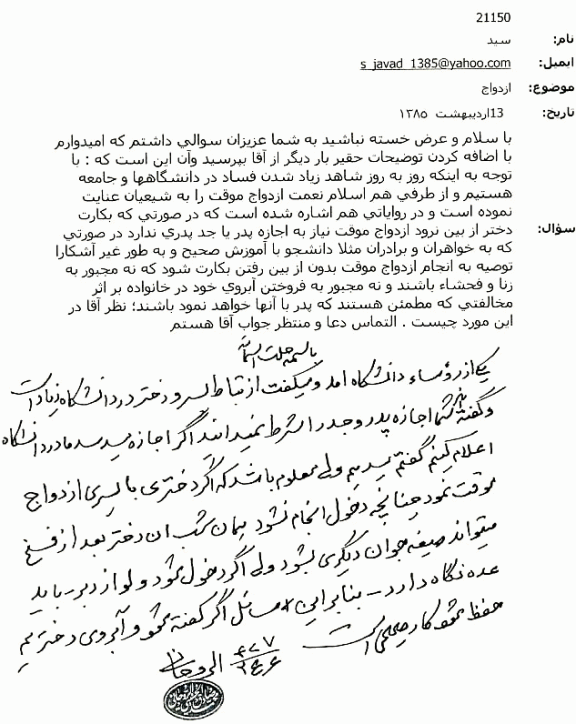 21150
نام: سید
ایمیل: s_javad_1385@yahoo.com
موضوع: ازدواج
تاریخ: 13اردیبهشت ١٣٨٥
با سلام و عرض خسته نباشید به شما عزیزان سوالي داشتم که امیدوارم
با اضافه کردن توضیحات حقیر بار دیگر از آقا بپرسید وآن این است که : با
توجه به اینکه روز به روز شاهد زیاد شدن فساد در دانشگاهها و جامعه
هستیم و از طرفي هم اسلام نعمت ازدواج موقت را به شیعیان عنایت
نموده است و در روایاتي هم اشاره شده است که در صورتي که بکارت
سؤال: دختر از بین نرود ازدواج موقت نیاز به اجازه پدر یا جد پدري ندارد در صورتي
که به خواهران و برادران مثلا دانشجو با آموزش صحیح و به طور غیر آشکارا
توصیه به انجام ازدواج موقت بدون از بین رفتن بکارت شود که نه مجبور به
زنا و فحشاء باشند و نه مجبور به فروختن آبروي خود در خانواده بر اثر
مخالفتي که مطمئن هستند که پدر با آنها خواهد نمود باشند؛ نظر آقا در
این مورد چیست . التماس دعا و منتظر جواب آقا هستم
باسمه جلت اسمائه
یکی از رؤساء دانشگاه امد و میگفت ارتباط پسر و دختر در دانشگاه زیاد است
و گفته شما اجازه پدر و جد را شرط نمیدانید اگر اجازه میدهید ما در دانشگاه
اعلام کنیم گفتم میدهیم ولی معلوم باشد که اگر دختری با پسری ازدواج
موقت نمود چنانچه دخول انجام نشود همان شب ان دختر بعد از فسخ
میتواند صیغه جوان دیگری بشود ولی اگر دخول شود و لو از دبر - باید
عده نگاه دارد - بنابراین مسائل اگر گفته شود و آبروی دختر هم
حفظ شود کار صحیحی است
الروحانی